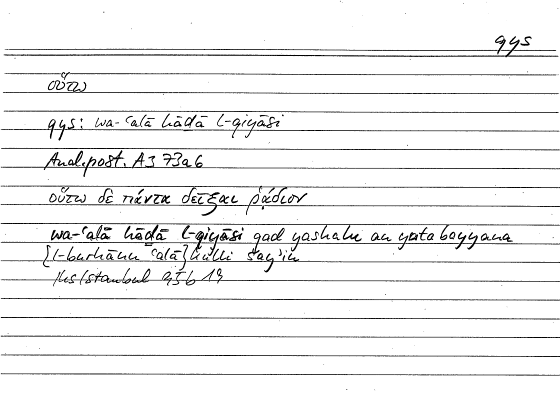 qys
οὕτω
qys: wa-ʿalā hāḏā l-qiyāsi
Anal.post. A3 73a6
οὕτω δὲ πάντα δεῖξαι ῥᾴδιον
wa-ʿalā hāḏā l-qiyāsi qad yashalu an yatabayyana
{l-burhānu ʿalā} kulli šayʾin
Hs Istanbul 95b 19